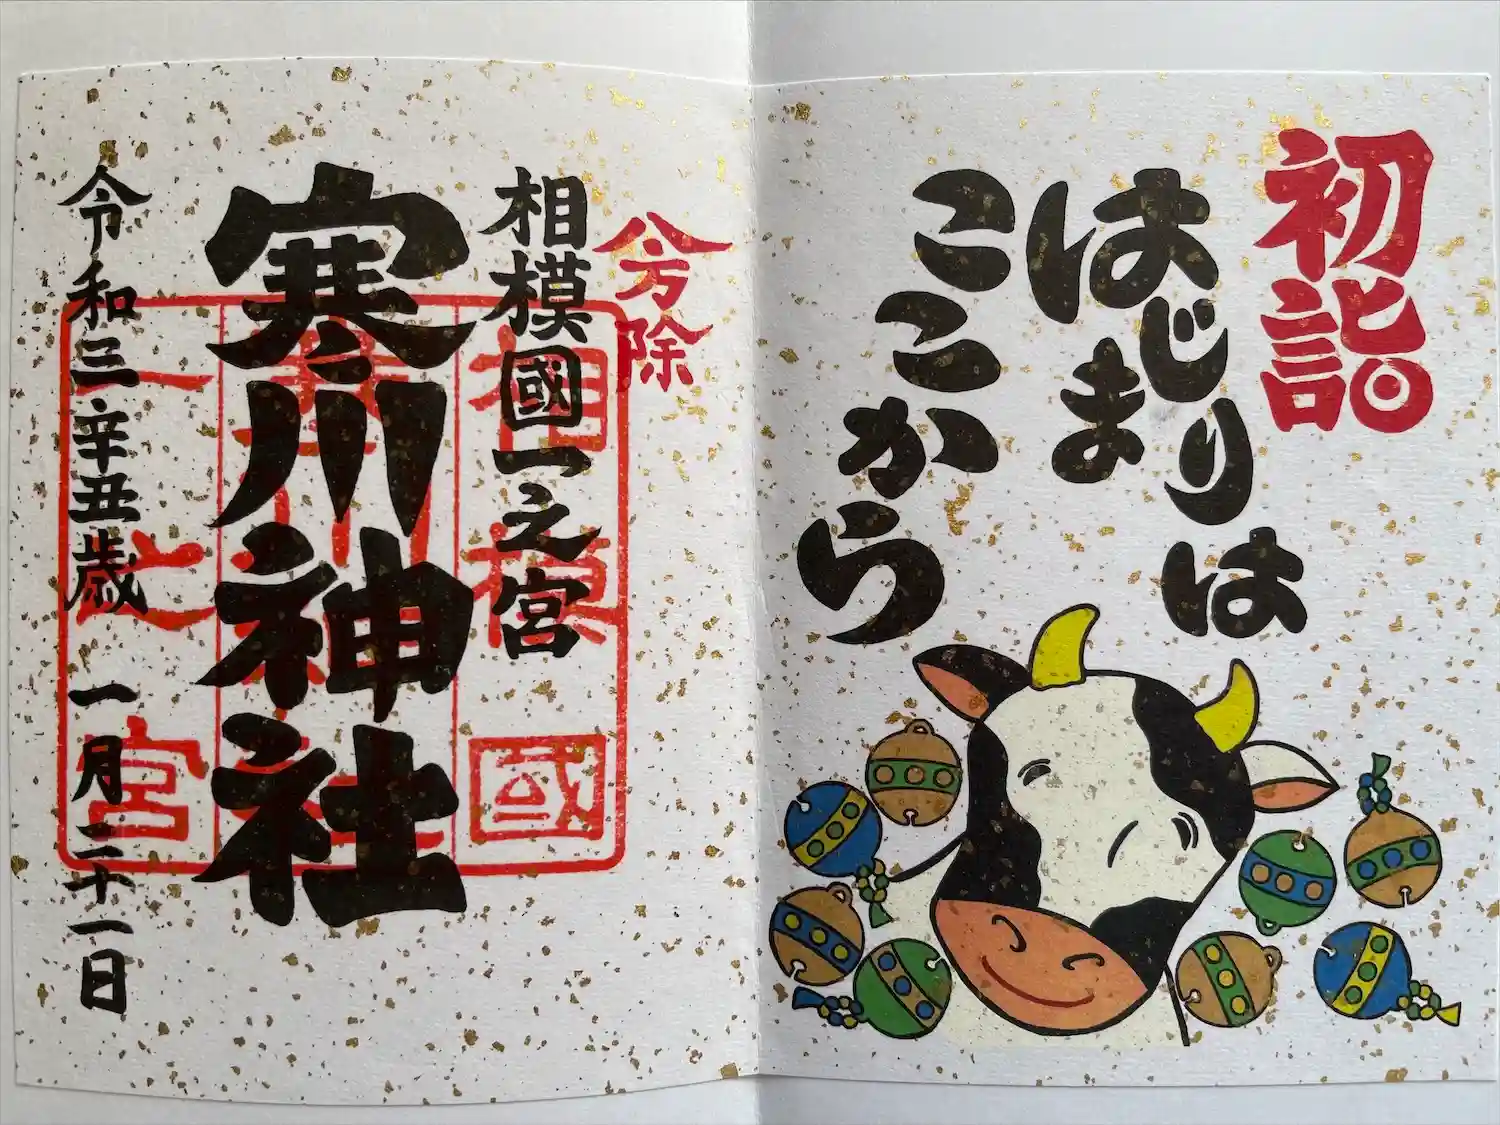 初詣
はじまりは
ここから
八方除
相模國一之宮
寒川神社
令和三辛丑歳 一月二十一日
相模國
寒川神社
一之宮